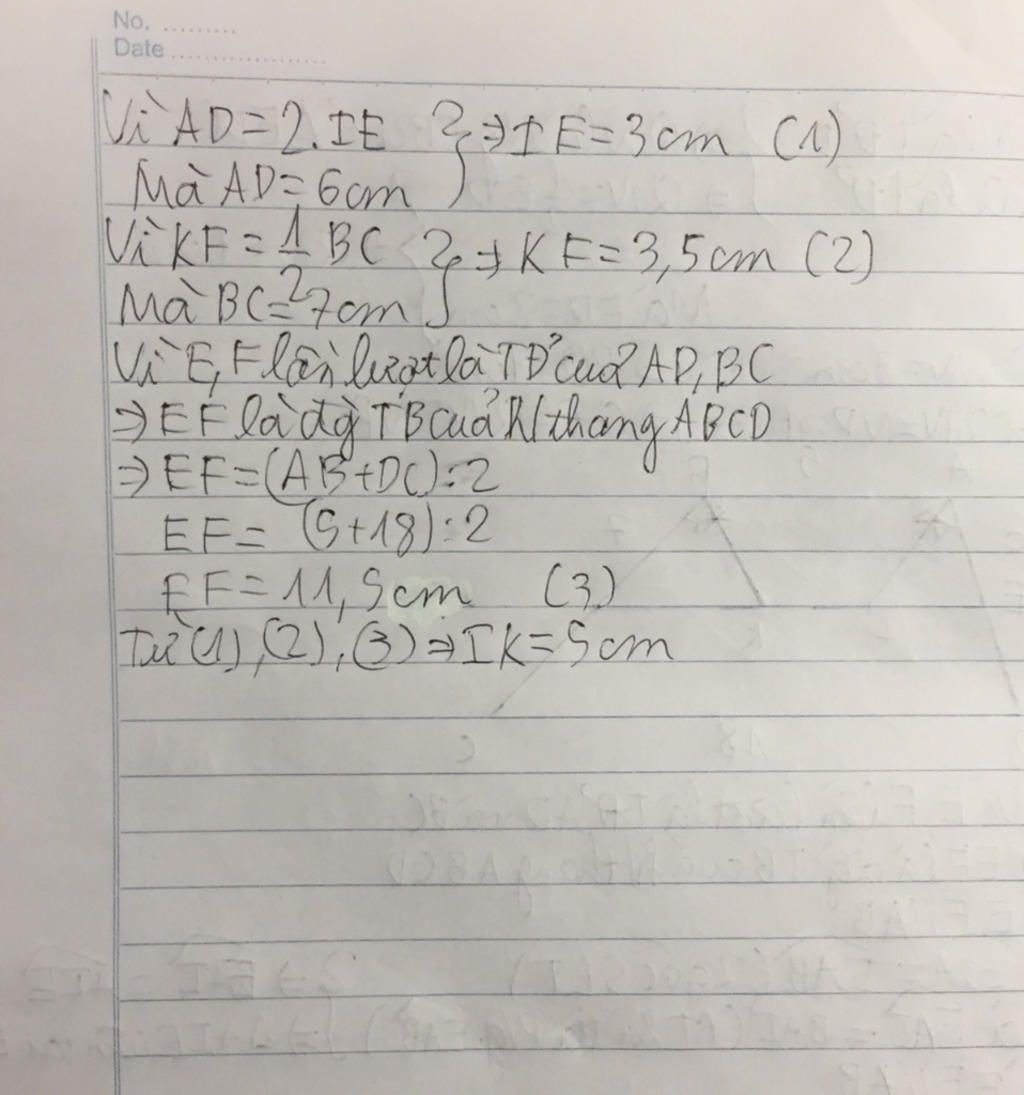 No. .........
Date ...................
Vì AD = 2.IE } ⇒ IE = 3cm (1)
Mà AD = 6cm
Vì KF = 1/2 BC } ⇒ KF = 3,5cm (2)
Mà BC = 7cm
Vì E, F lần lượt là TĐ của AD, BC
⇒ EF là đg TB của h/thang ABCD
⇒ EF = (AB + DC) : 2
EF = (5 + 18) : 2
EF = 11,5cm (3)
Từ (1), (2), (3) ⇒ IK = 5cm